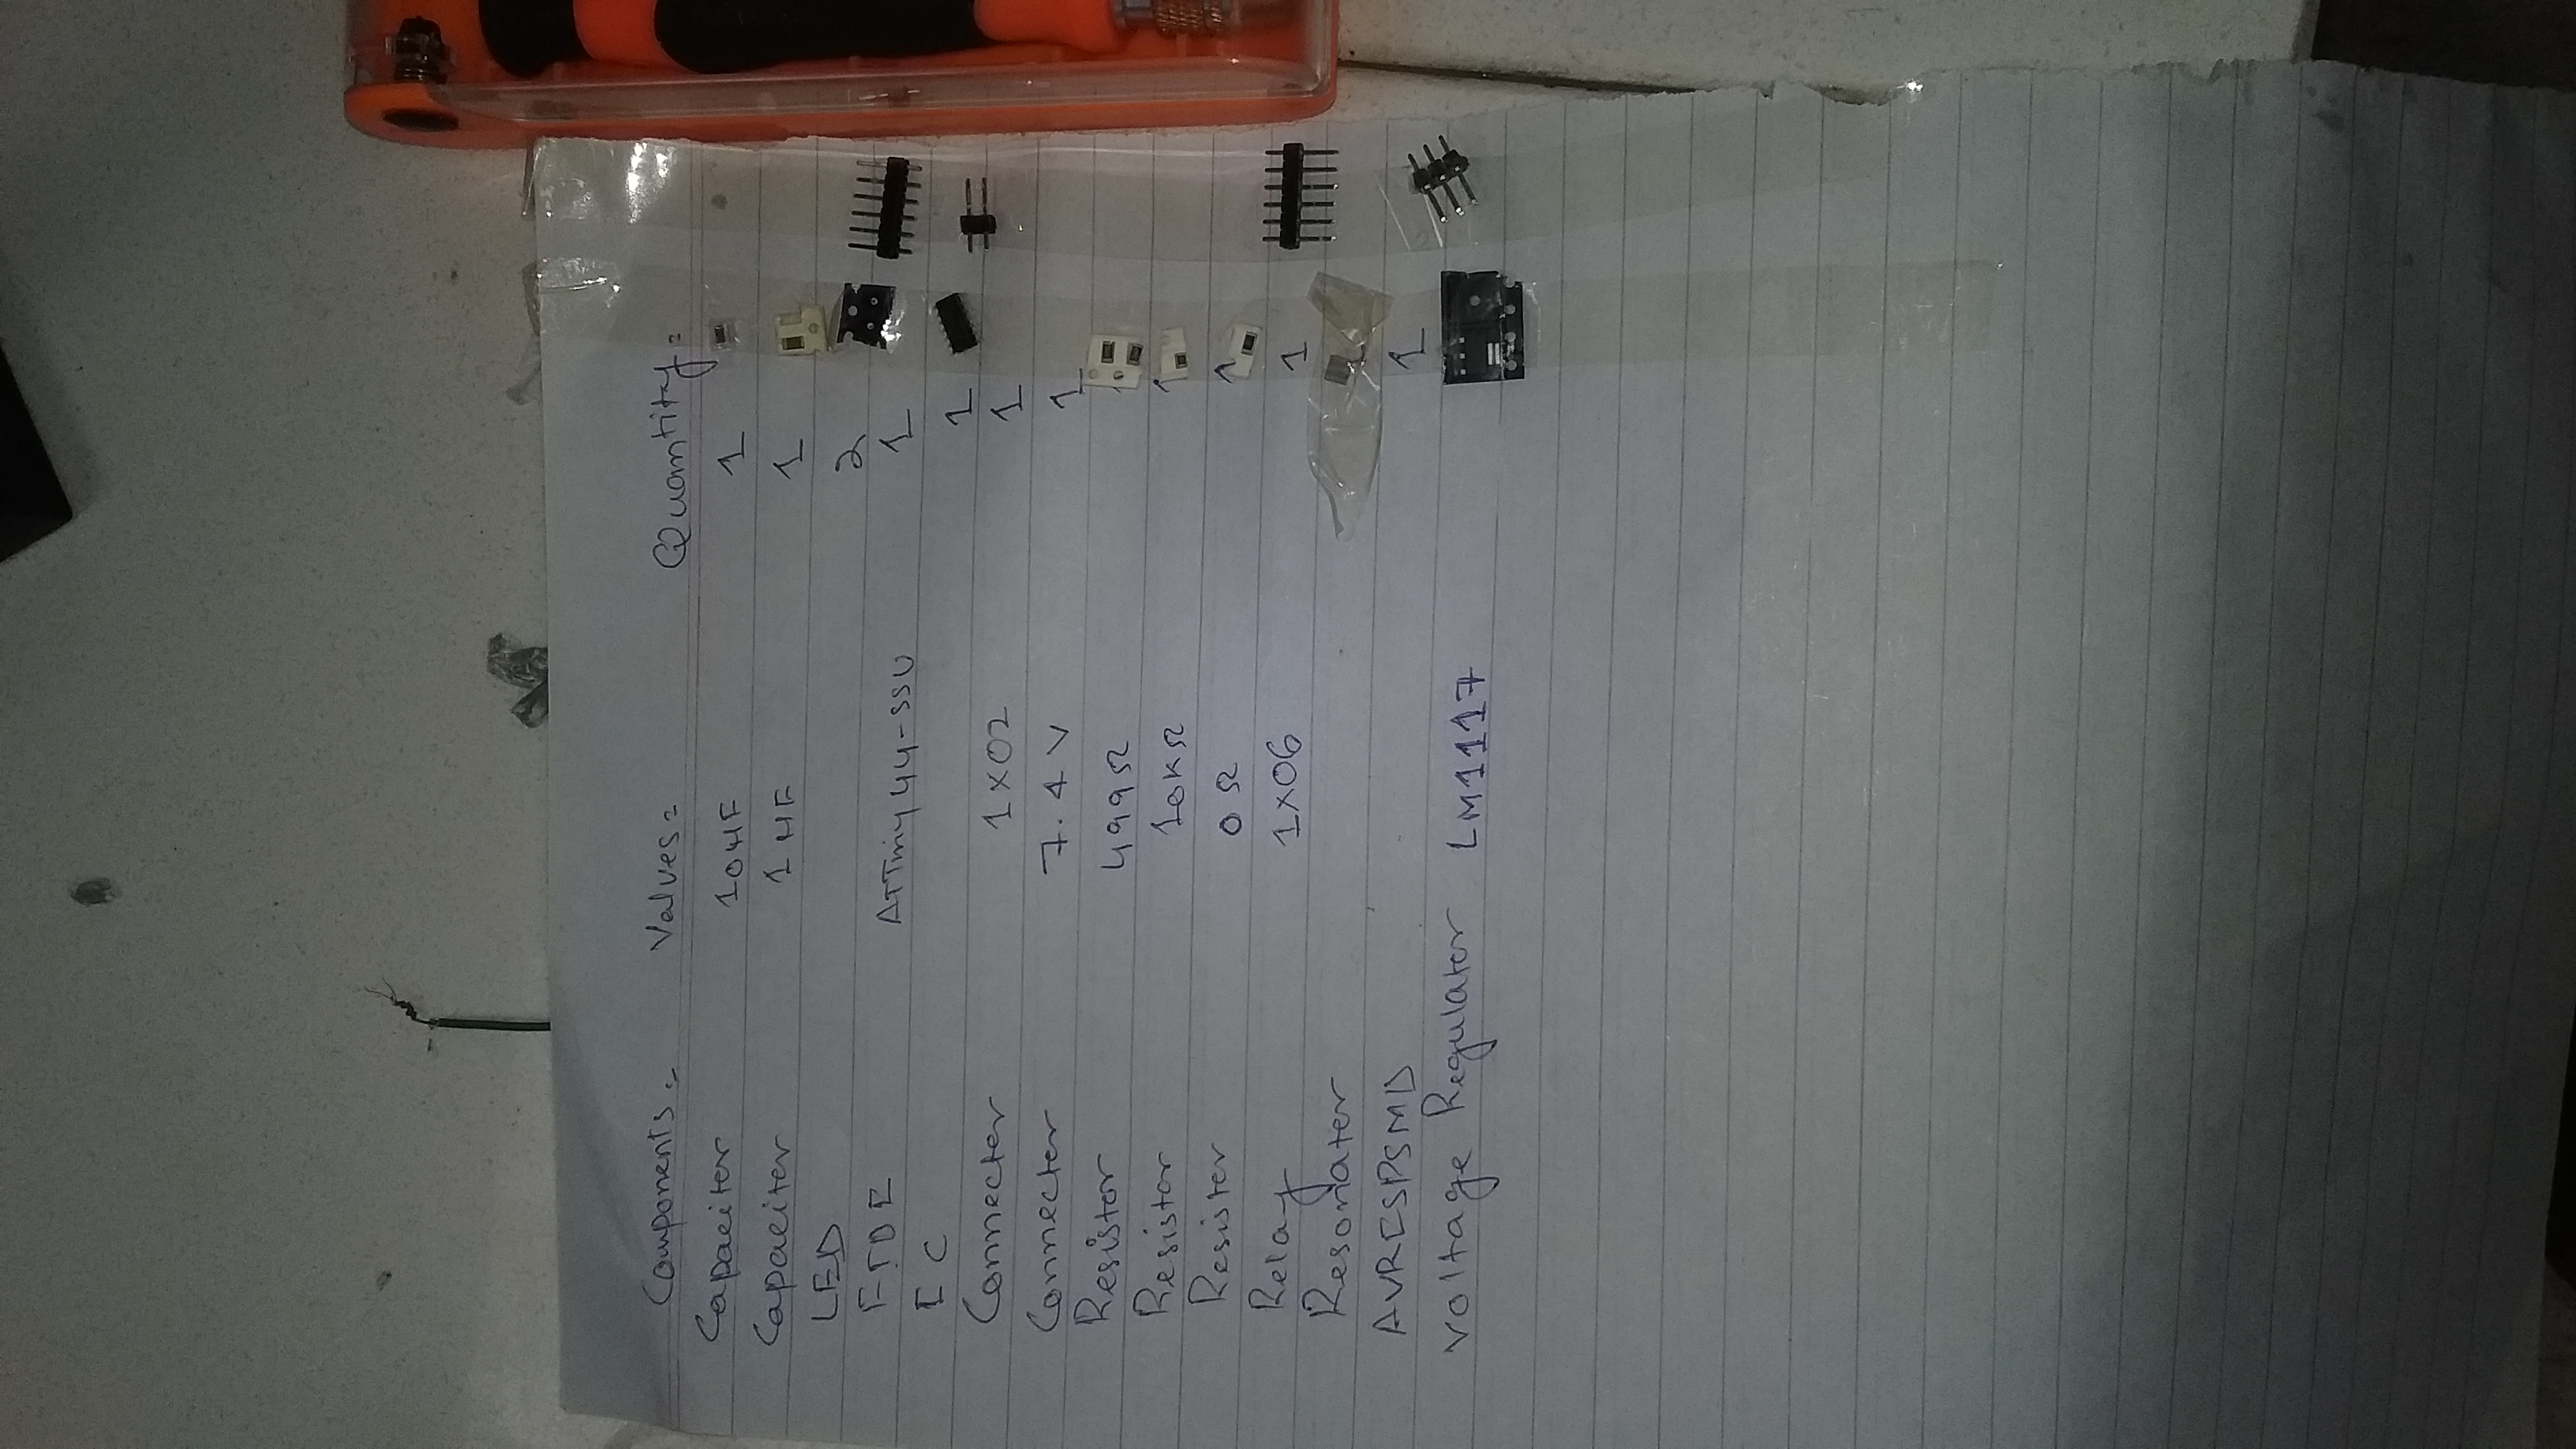 Components: Values: Quantity:
Capacitor 10 µF 1
Capacitor 1 µF 1
LED 2
FTDI 1
IC ATTiny44-SSU 1
Connecter 1x02 1
Connecter 7.4 V 1
Resistor 499Ω
Resistor 10KΩ 1
Resister 0Ω 1
Relay 1x06 1
Resonater
AVRISPSMD 1
Voltage Regulator LM1117